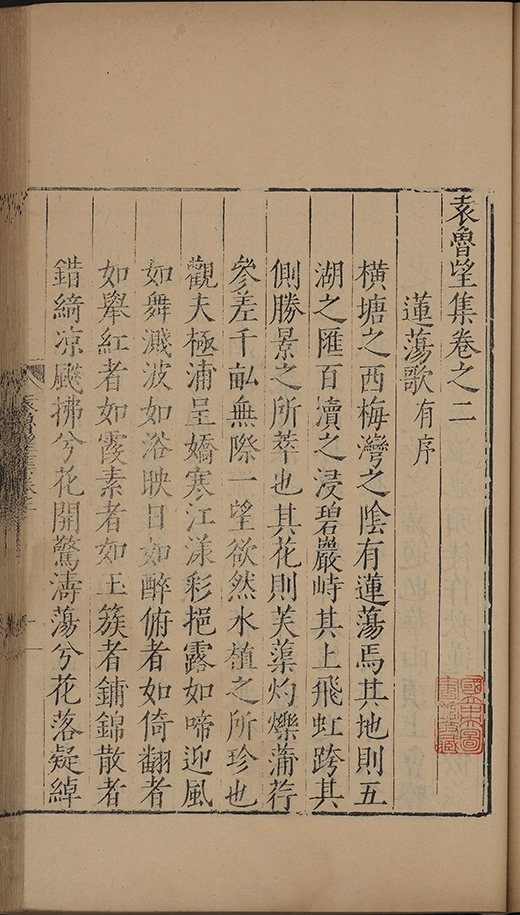 袁魯望集卷之二
蓮蕩歌有序
橫塘之西梅灣之陰有蓮蕩焉其地則五
湖之匯百瀆之浸碧巖峙其上飛虹跨其
側勝景之所萃也其花則芙蕖灼爍蒲荇
參差千畝無際一望欲然水植之所珍也
觀夫極浦呈嬌寒江漾彩挹露如啼迎風
如舞濺波如浴映日如醉俯者如倚翻者
如舉紅者如霞素者如玉簇者鋪錦散者
錯綺凉颸拂兮花開驚濤蕩兮花落疑綽
國立中央圖
書館收藏